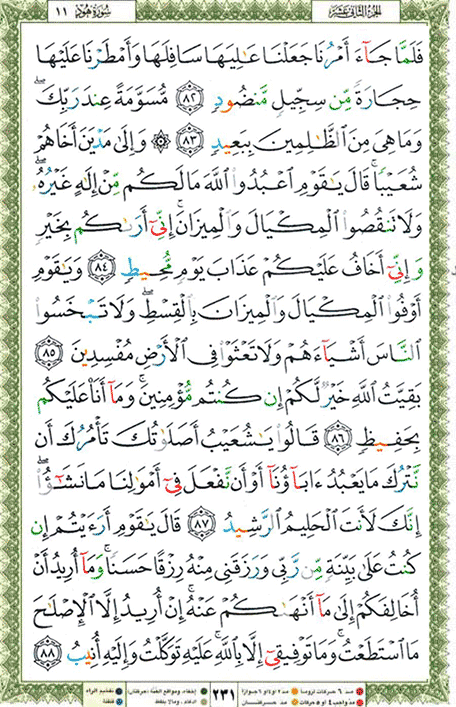 الجزء الثاني عشر
سورة هود ١١
فَلَمَّا جَآءَ أَمْرُنَا جَعَلْنَا عَٰلِيَهَا سَافِلَهَا وَأَمْطَرْنَا عَلَيْهَا
حِجَارَةً مِّن سِجِّيلٍ مَّنضُودٍ ٨٢ مُّسَوَّمَةً عِندَ رَبِّكَ ۖ
وَمَا هِىَ مِنَ ٱلظَّٰلِمِينَ بِبَعِيدٍ ٨٣ ۞ وَإِلَىٰ مَدْيَنَ أَخَاهُمْ
شُعَيْبًا ۚ قَالَ يَٰقَوْمِ ٱعْبُدُوا۟ ٱللَّهَ مَا لَكُم مِّنْ إِلَٰهٍ غَيْرُهُۥ ۖ
وَلَا تَنقُصُوا۟ ٱلْمِكْيَالَ وَٱلْمِيزَانَ ۚ إِنِّىٓ أَرَىٰكُم بِخَيْرٍ
وَإِنِّىٓ أَخَافُ عَلَيْكُمْ عَذَابَ يَوْمٍ مُّحِيطٍ ٨٤ وَيَٰقَوْمِ
أَوْفُوا۟ ٱلْمِكْيَالَ وَٱلْمِيزَانَ بِٱلْقِسْطِ ۖ وَلَا تَبْخَسُوا۟
ٱلنَّاسَ أَشْيَآءَهُمْ وَلَا تَعْثَوْا۟ فِى ٱلْأَرْضِ مُفْسِدِينَ ٨٥
بَقِيَّتُ ٱللَّهِ خَيْرٌ لَّكُمْ إِن كُنتُم مُّؤْمِنِينَ ۚ وَمَآ أَنَا۠ عَلَيْكُم
بِحَفِيظٍ ٨٦ قَالُوا۟ يَٰشُعَيْبُ أَصَلَوٰتُكَ تَأْمُرُكَ أَن
نَّتْرُكَ مَا يَعْبُدُ ءَابَآؤُنَآ أَوْ أَن نَّفْعَلَ فِىٓ أَمْوَٰلِنَا مَا نَشَٰٓؤُا۟ ۖ
إِنَّكَ لَأَنتَ ٱلْحَلِيمُ ٱلرَّشِيدُ ٨٧ قَالَ يَٰقَوْمِ أَرَءَيْتُمْ إِن
كُنتُ عَلَىٰ بَيِّنَةٍ مِّن رَّبِّى وَرَزَقَنِى مِنْهُ رِزْقًا حَسَنًا ۚ وَمَآ أُرِيدُ أَنْ
أُخَالِفَكُمْ إِلَىٰ مَآ أَنْهَىٰكُمْ عَنْهُ ۚ إِنْ أُرِيدُ إِلَّا ٱلْإِصْلَٰحَ
مَا ٱسْتَطَعْتُ ۚ وَمَا تَوْفِيقِىٓ إِلَّا بِٱللَّهِ ۚ عَلَيْهِ تَوَكَّلْتُ وَإِلَيْهِ أُنِيبُ ٨٨
مد ٦ حركات لزوما مد ٢ أو ٤ أو ٦ جوازا ٢٣١ إخفاء، ومواقع الغنة (حركتان) تفخيم الراء
مد واجب ٤ أو ٥ حركات مد حركتان إدغام، وما لا يلفظ قلقلة